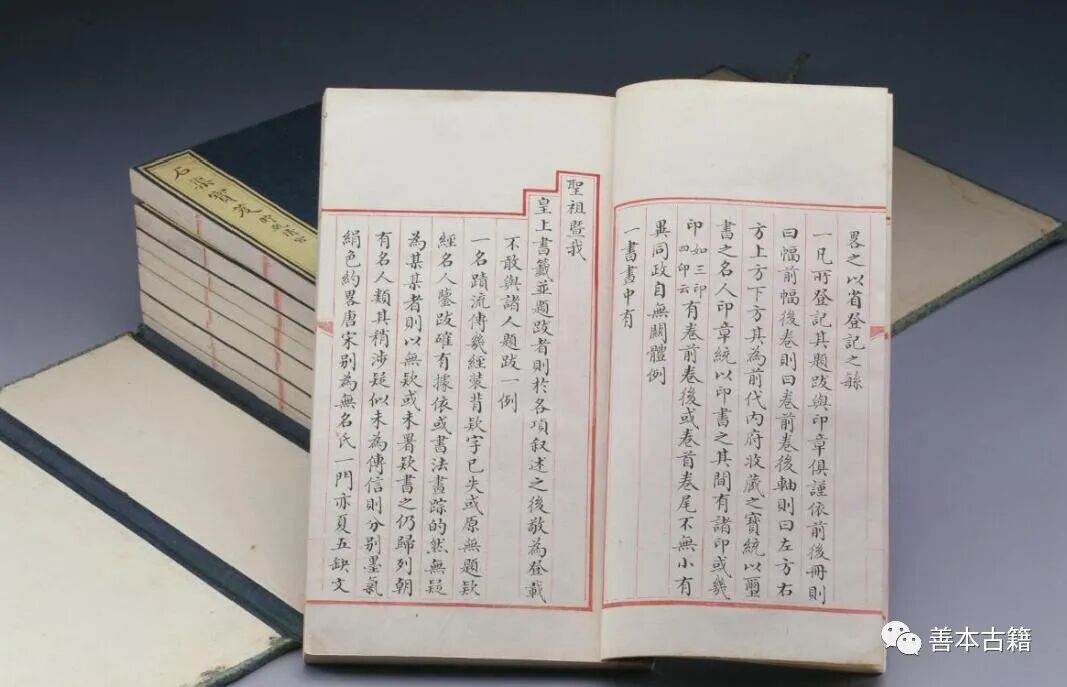 畧之以省登記之緐
一凡所登記其題跋與印章俱謹依前後冊則
曰幅前幅後卷則曰卷前卷後軸則曰左方右
方上方下方其為前代內府收藏之寶統以璽
書之名人印章統以印書之其間有諸印或幾
印如三印四印云有卷前卷後或卷首卷尾不無小有
異同政自無關體例
一書畫中有
聖祖暨我
皇上書籤並題跋者則於各項叙述之後敬為登載
不敢與諸人題跋一例
一名蹟流傳幾經裝背欵字已失或原無題欵
經名人鑒跋確有據依或書法畫踪的然無疑
為某某者則以無欵或未署欵書之仍歸列朝
有名人類其稍涉疑似未為傳信則分别墨氣
絹色約畧唐宋别為無名氏一門亦夏五缺文
石渠寶笈
善本古籍